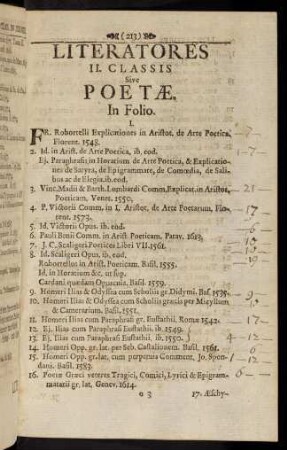 (213)
LITERATORES
II. CLASSIS
Sive
POETÆ.
In Folio.
I.
FR. Robortelli Explicationes in Aristot. de Arte Poetica,
Florent. 1548.
2. Id. in Arist. de Arte Poetica, ib. eod.
Ej. Paraphrasis in Horatium de Arte Poetica, & Explicatio-
nes de Satyra, de Epigrammate, de Comœdia, de Sali-
bus ac de Elegia. ib. eod.
3. Vinc. Madii & Barth. Lombardi Comm. Explicat. in Aristot.
Poeticam. Venet. 1550.
4. P. Victorii Comm. in I. Aristot. de Arte Poetarum, Flo-
rent. 1573.
5. Id. Victorii Opus. ib. eod.
6. Pauli Benii Comm. in Arist. Poeticam. Patav. 1613.
7. J. C. Scaligeri Poetices Libri VII. 1561.
8. Id. Scaligeri Opus ib. eod.
Robortellus in Arist. Poeticam. Basil. 1555.
Id. in Horatium &c. ut sup.
Cardani quædam Opuscula. Basil. 1559.
9. Homeri Ilias & Odyssea cum Scholiis gr. Didymi. Bas. 1535.
10. Homeri Ilias & Odyssea cum Scholiis græcis per Micyllum
& Camerarium. Basil. 1551.
11. Homeri Ilias cum Paraphrasi gr. Eustathii. Romæ 1542.
12. Ej. Ilias cum Paraphrasi Eustathii. ib. 1549.
13. Ej. Ilias cum Paraphrasi Eustathii. ib. 1550.
14. Homeri Opp. gr. lat. per Seb. Castalionem. Basil. 1561.
15. Homeri Opp. gr. lat. cum perpetuis Comment. Jo. Spon-
dani. Basil. 1583.
16. Poetæ Græci veteres Tragici, Comici, Lyrici & Epigram-
matarii gr. lat. Genev. 1614.
o 3 17. Æschy-